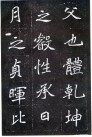 父也體乾坤
之懿性承日
月之貞暉比